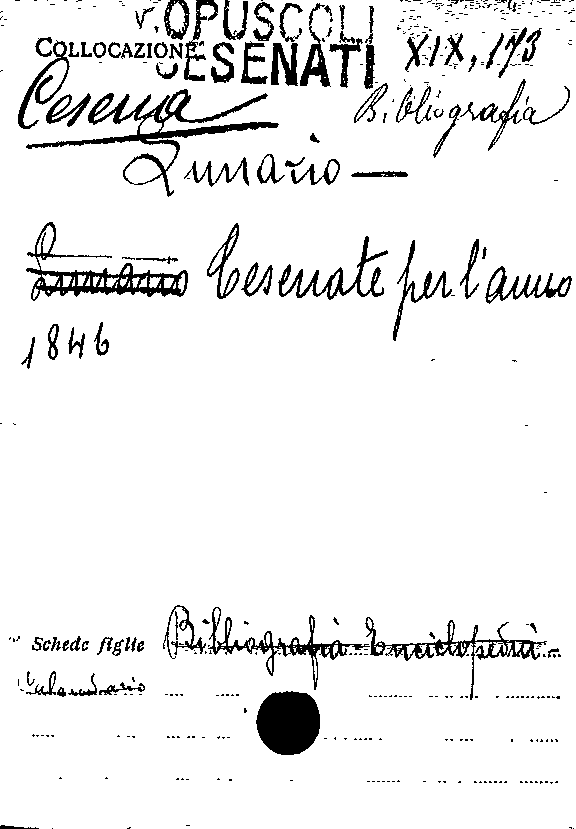 V. OPUSCOLI
COLLOCAZIONE CESENATI XIX, 173
Cesena Bibliografia
Lunario —
Lunario Cesenate per l'anno
1846
Schede figlie Bibliografia - Enciclopedia -
Calendario